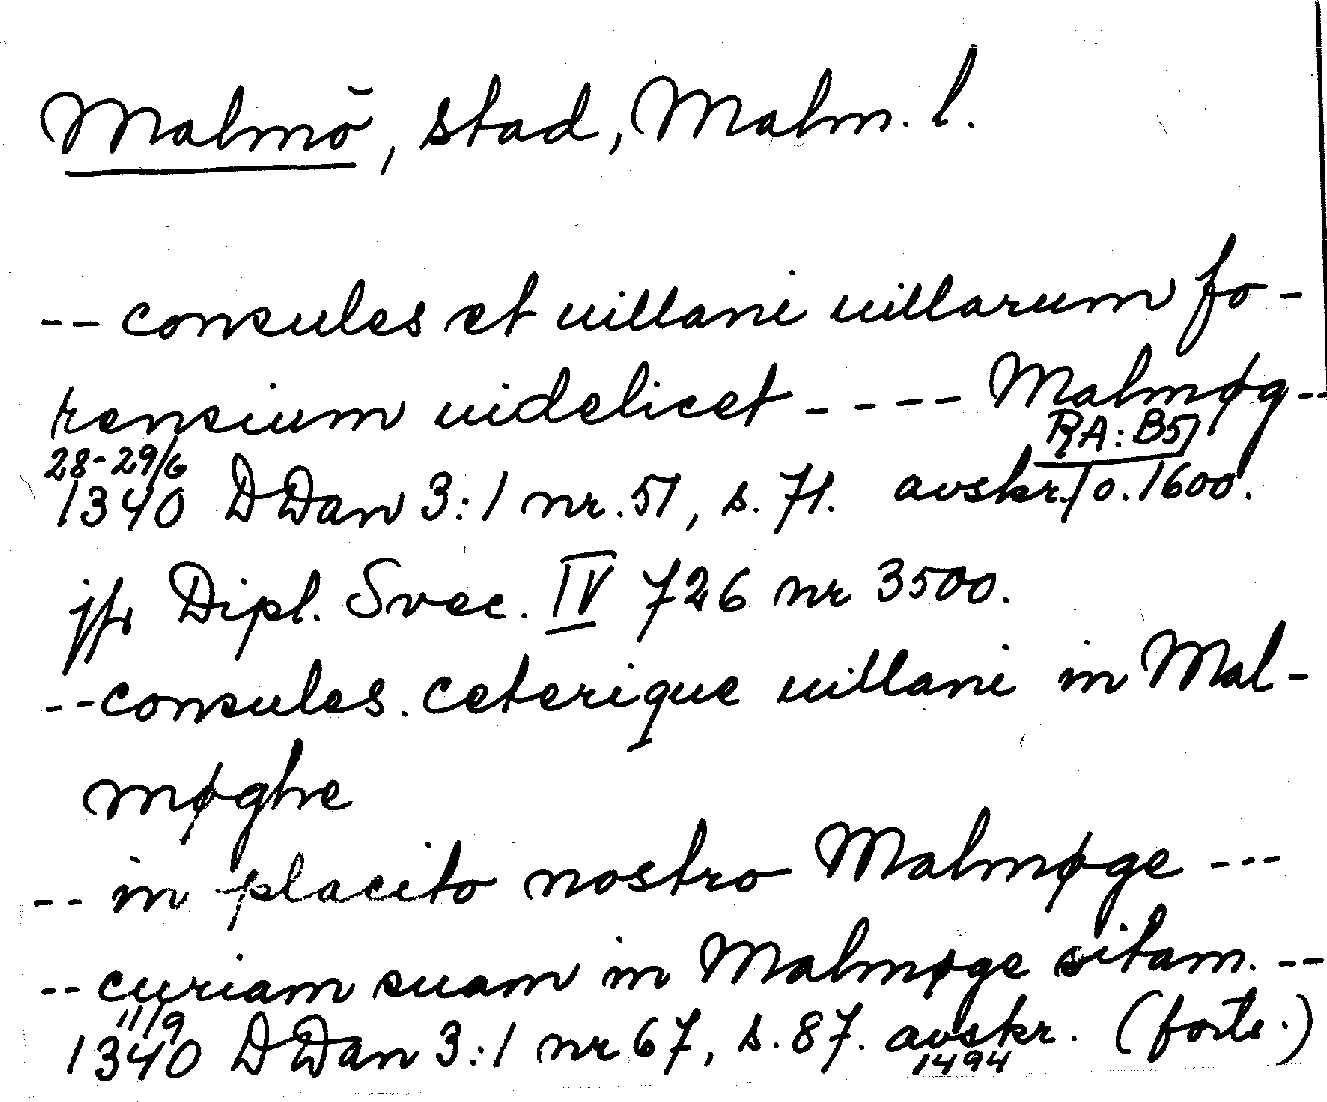 Malmö, stad, Malm. l.
-- consules et uillani uillarum fo-
rensium uidelicet ---- Malmøg --
RA: B5
28-29/6
1340 DDan 3:1 nr. 51, s. 71. avskr. o. 1600.
jfr Dipl. Svec. IV 726 nr 3500.
-- consules. ceterique uillani in Mal-
møghe
-- in placito nostro Malmøge ---
-- curiam suam in Malmøge sitam. --
11/9
1340 DDan 3:1 nr 67, s. 87. avskr. (forts.)
1494